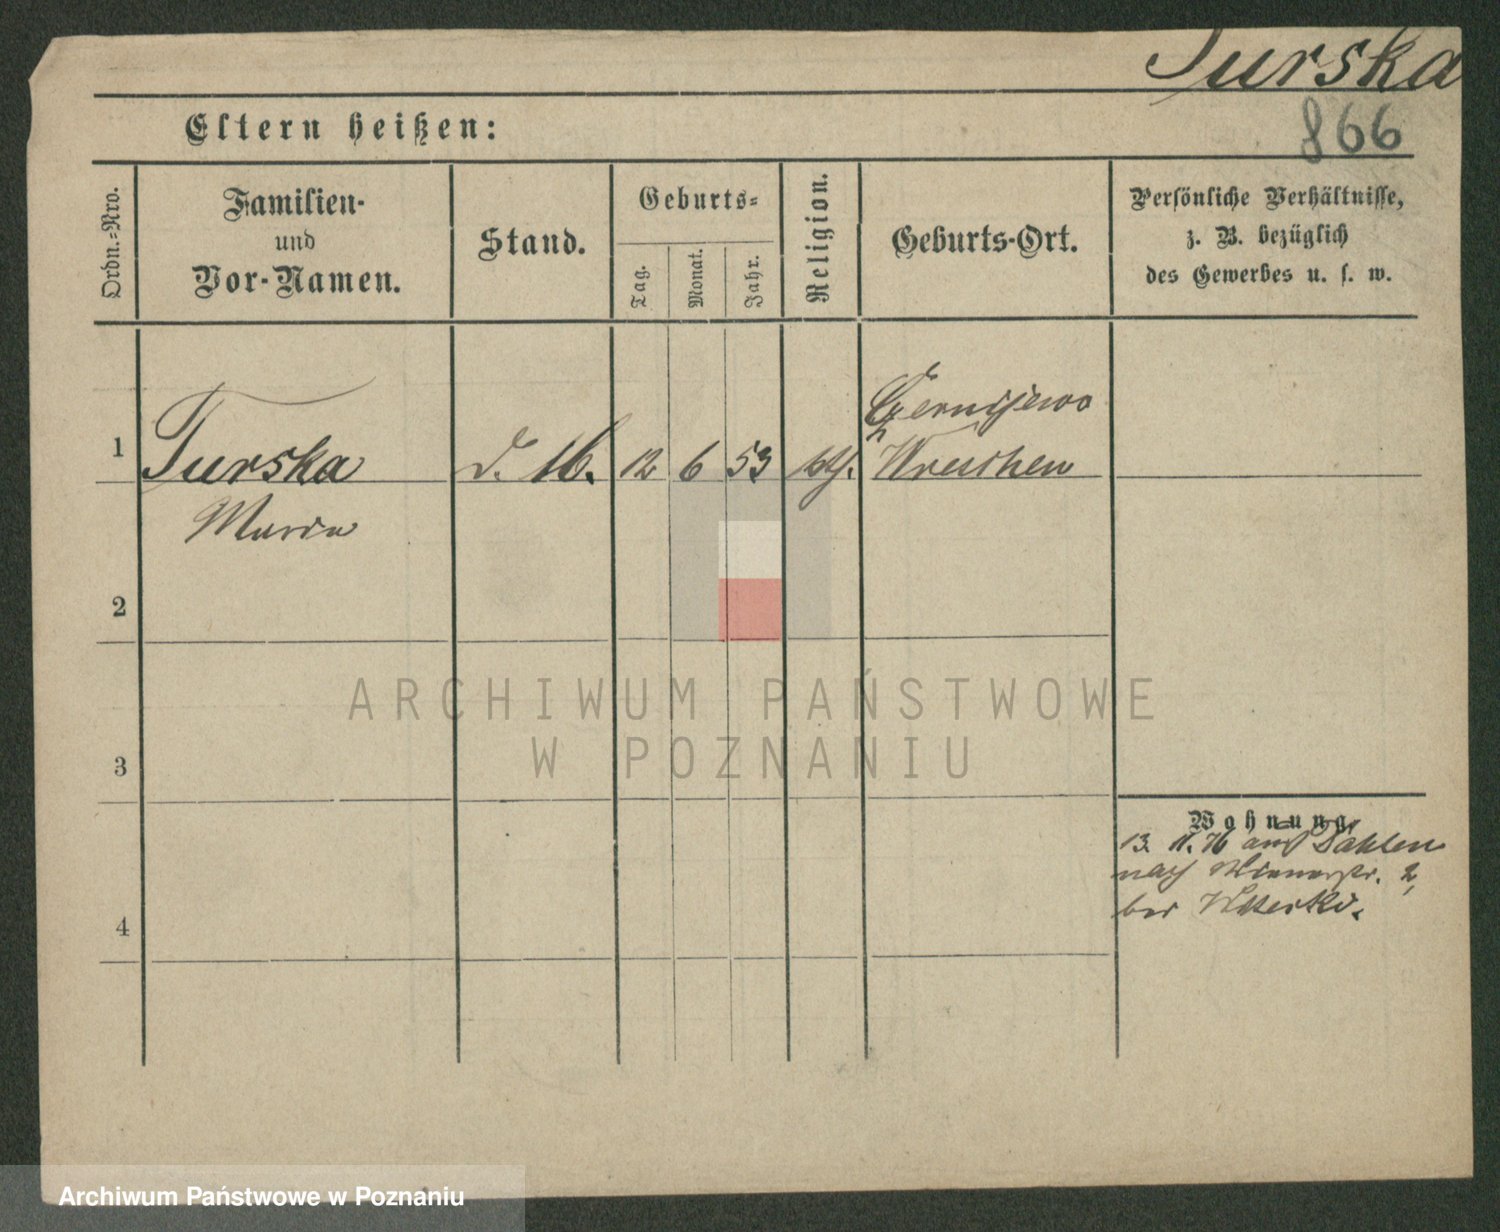 Turska
866
Eltern heißen:
Ordn.-Nro.
Familien-
und
Vor-Namen.
Stand.
Geburts-
Tag.
Monat.
Jahr.
Religion.
Geburts-Ort.
Persönliche Verhältnisse,
z. B. bezüglich
des Gewerbes u. s. w.
1
Turska
Maria
d. M.
12
6
53
kth.
Wreschen
2
3
4
Wohnung.
13. 11. 76 aus Dahlen
nach 2,
bei
ARCHIWUM PAŃSTWOWE
W POZNANIU
Archiwum Państwowe w Poznaniu